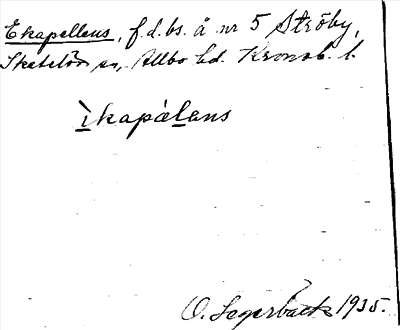 Ekapellens, f.d. bs. å nr 5 Ströby,
Skatelöv sn, Allbo hd. Kronob. l.
ìkapàlens
O. Segerbäck 1935.